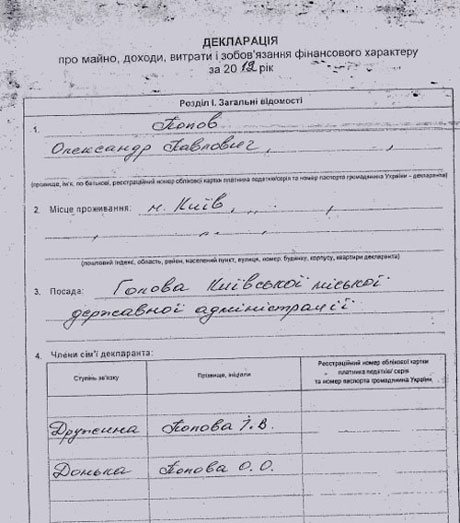 ДЕКЛАРАЦІЯ
про майно, доходи, витрати і зобов'язання фінансового характеру
за 2012 рік
Розділ І. Загальні відомості
1. Попов
Олександр Павлович, ,
(прізвище, ім'я, по батькові, реєстраційний номер облікової картки платника податків/серія та номер паспорта громадянина України – декларанта)
2. Місце проживання: м. Київ, , ,
(поштовий індекс, область, район, населений пункт, вулиця, номер будинку, корпусу, квартири декларанта)
3. Посада: Голова Київської міської
державної адміністрації
4. Члени сім'ї декларанта:
Ступінь зв'язку
Прізвище, ініціали
Реєстраційний номер облікової картки
платника податків/ серія
та номер паспорта громадянина України
Дружина Попова І. В.
Донька Попова О. О.